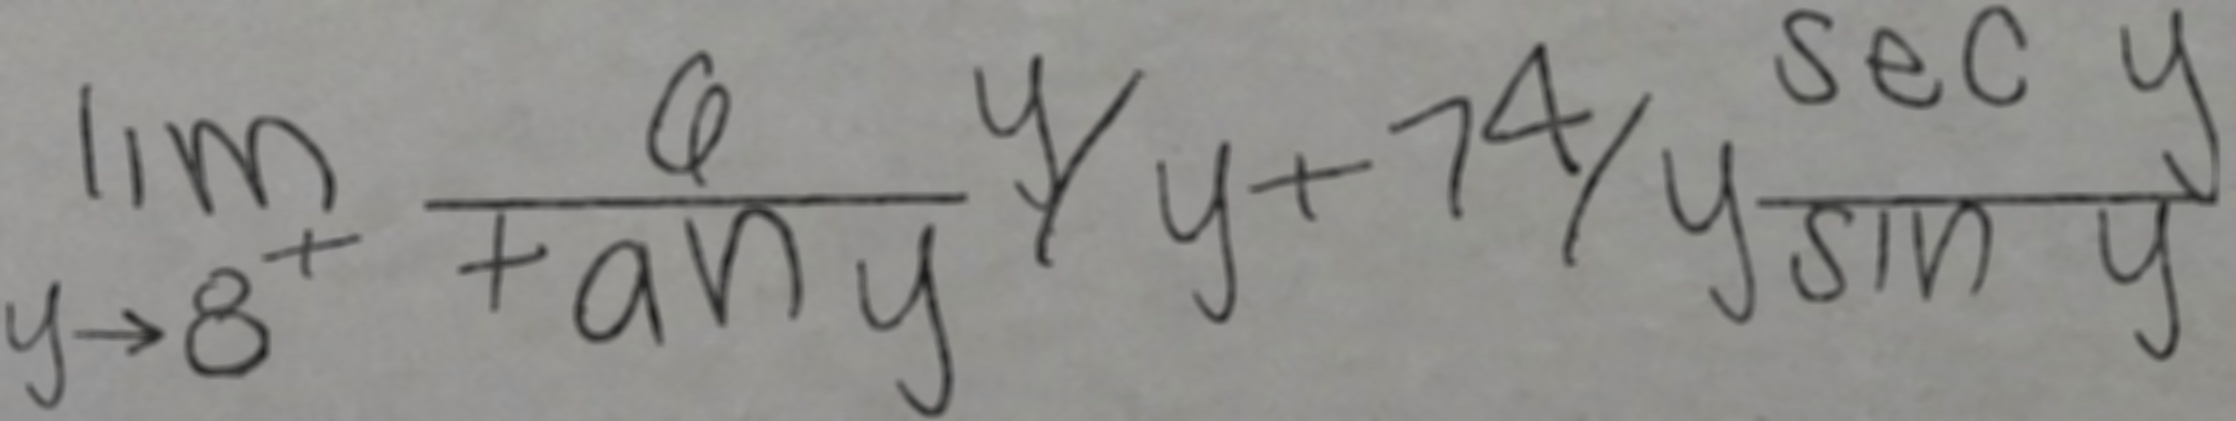 \lim_{y \to 8^+} \frac{6}{\tan y} y / y + 7^4 / y \frac{\sec y}{\sin y}